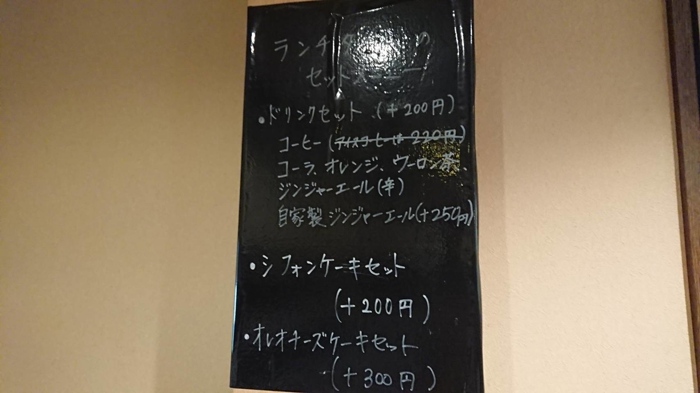 ランチ
セット
・ドリンクセット (+200円)
コーヒー(アイスコーヒーは220円)
コーラ、オレンジ、ウーロン茶、
ジンジャーエール(辛)
自家製ジンジャーエール(+250円)
・シフォンケーキセット
(+200円)
・オレオチーズケーキセット
(+300円)